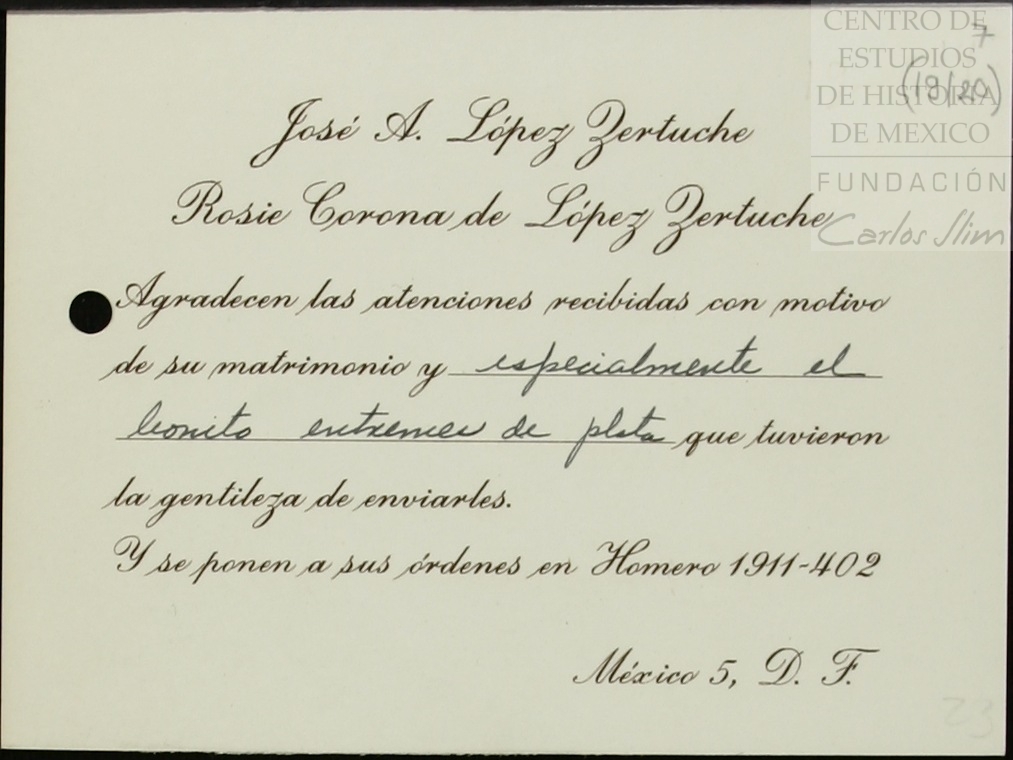 CENTRO DE
ESTUDIOS
DE HISTORIA
DE MEXICO
FUNDACIÓN
Carlos Slim
7
(19/20)
José A. López Zertuche
Rosie Corona de López Zertuche
Agradecen las atenciones recibidas con motivo
de su matrimonio y especialmente el
bonito entremes de plata que tuvieron
la gentileza de enviarles.
Y se ponen a sus órdenes en Homero 1911-402
México 5, D. F.
23